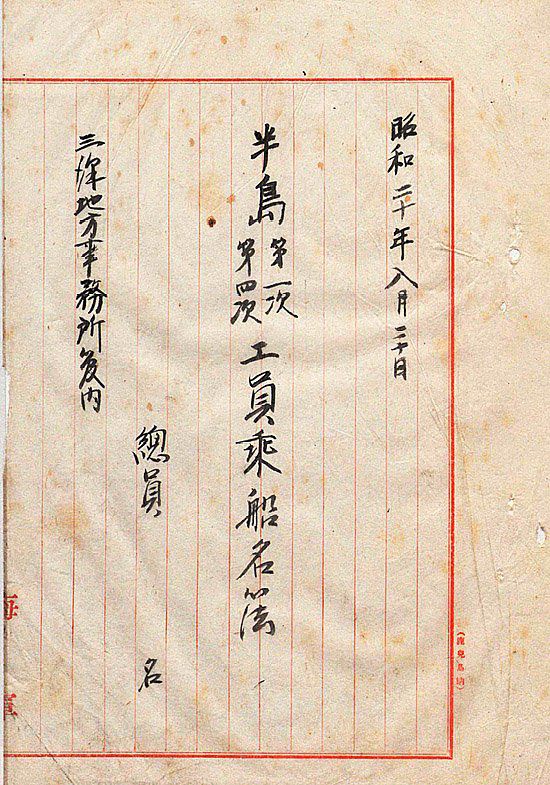 昭和二十年八月二十日
半島第一次第四次工員乗船名簿
總員 名
三澤地方事務所
海軍